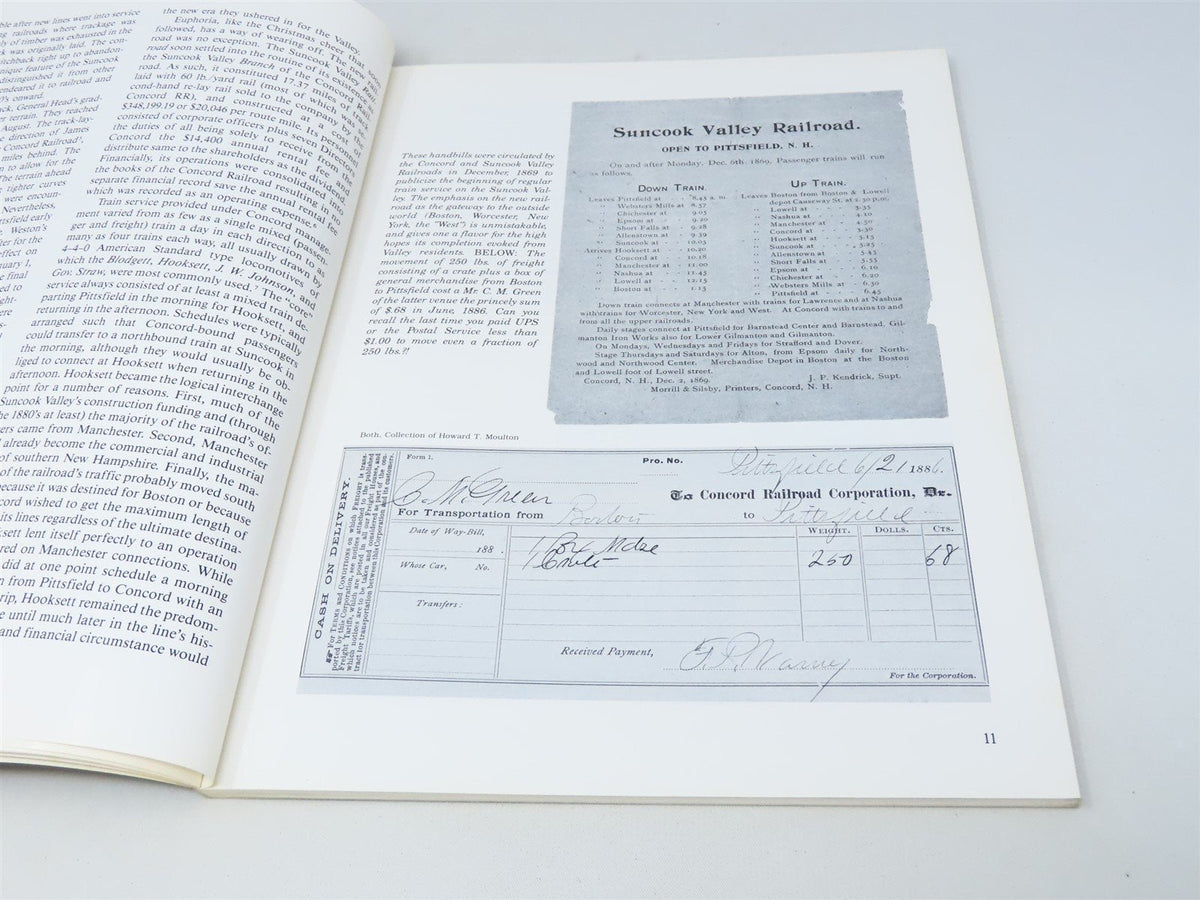 ble after new lines went into service
ng railroads where trackage was
ly of timber was exhausted in the
k was originally laid. The con-
itchback right up to abandon-
nique feature of the Suncook
distinguished it from other
endeared it to railroad and
0's onward.
ck, General Head's grad-
er terrain. They reached
August. The track-lay-
e direction of James
Concord Railroad
miles behind. The
n to allow for the
The terrain ahead
tighter curves
were encoun-
Nevertheless,
tsfield early
, Weston's
ter for the
effect on
nuary 1,
final
ed to
the new era they ushered in for the Valley.
Euphoria, like the Christmas cheer that soon
followed, has a way of wearing off. The new rail-
road was no exception. The Suncook Valley Rail-
road soon settled into the routine of its existence as
the Suncook Valley Branch of the Concord Rail-
road. As such, it constituted 17.37 miles of track
laid with 60 lb./yard rail (most of which was se-
cond-hand re-lay rail sold to the company by the
Concord RR), and constructed at a cost of
$348,199.19 or $20,046 per route mile. Its personnel
consisted of corporate officers plus seven Directors
the duties of all being solely to receive from
Concord the $14,400 annual rental fee and
distribute same to the shareholders as the dividend.
Financially, its operations were consolidated into
the books of the Concord Railroad resulting in no
separate financial record save the annual rental fee
which was recorded as an operating expense.
Train service provided under Concord manage-
ment varied from as few as a single mixed (passen-
ger and freight) train a day in each direction to as
many as four trains each way, all usually drawn by
4-4-0 American Standard type locomotives of
which the Blodgett, Hooksett, J. W. Johnson, and
Gov. Straw, were most commonly used.⁷ The "core"
service always consisted of at least a mixed train de-
parting Pittsfield in the morning for Hooksett, and
returning in the afternoon. Schedules were typically
arranged such that Concord-bound passengers
could transfer to a northbound train at Suncook in
the morning, although they would usually be ob-
liged to connect at Hooksett when returning in the
afternoon. Hooksett became the logical interchange
point for a number of reasons. First, much of the
Suncook Valley's construction funding and (through
he 1880's at least) the majority of the railroad's of-
ers came from Manchester. Second, Manchester
already become the commercial and industrial
of southern New Hampshire. Finally, the ma-
of the railroad's traffic probably moved south
ecause it was destined for Boston or because
cord wished to get the maximum length of
its lines regardless of the ultimate destina-
sett lent itself perfectly to an operation
red on Manchester connections. While
did at one point schedule a morning
n from Pittsfield to Concord with an
rip, Hooksett remained the predom-
e until much later in the line's his-
and financial circumstance would
These handbills were circulated by
the Concord and Suncook Valley
Railroads in December, 1869 to
publicize the beginning of regular
train service on the Suncook Val-
ley. The emphasis on the new rail-
road as the gateway to the outside
world (Boston, Worcester, New
York, the "West") is unmistakable,
and gives one a flavor for the high
hopes its completion evoked from
Valley residents. BELOW: The
movement of 250 lbs. of freight
consisting of a crate plus a box of
general merchandise from Boston
to Pittsfield cost a Mr. C. M. Green
of the latter venue the princely sum
of $.68 in June, 1886. Can you
recall the last time you paid UPS
or the Postal Service less than
$1.00 to move even a fraction of
250 lbs.?!
Suncook Valley Railroad.
OPEN TO PITTSFIELD, N. H.
On and after Monday, Dec. 6th, 1869, Passenger trains will run
as follows,
DOWN TRAIN.
Leaves Pittsfield at 8.45 a. m.
" Websters Mills at 8.57
" Chichester at 9.05
" Epsom at 9.20
" Short Falls at 9.28
" Allenstown at 9.39
" Suncook at 10.03
Arrives Hooksett at 10.20
" Concord at 10.18
" Manchester at 11.00
" Nashua at 11.45
" Lowell at 12.15
" Boston at 1.15
UP TRAIN.
Leaves Boston from Boston & Lowell
depot Causeway St. at 2.30 p.m.
" Lowell at 3.35
" Nashua at 4.10
" Manchester at 4.50
" Concord at
" Hooksett at 5.15
" Suncook at 5.25
" Allenstown at 5.45
" Short Falls at 5.55
" Epsom at 6.10
" Chichester at 6.20
" Websters Mills at 6.30
" Pittsfield at 6.45
Down train connects at Manchester with trains for Lawrence and at Nashua
with trains for Worcester, New York and West. At Concord with trains to
and from all the upper railroads.
Daily stages connect at Pittsfield for Barnstead Center and Barnstead, Gil-
manton Iron Works also for Lower Gilmanton and Gilmanton.
On Mondays, Wednesdays and Fridays for Strafford and Dover.
Stage Thursdays and Saturdays for Alton, from Epsom daily for North-
wood and Northwood Center. Merchandise Depot in Boston at the Boston
and Lowell foot of Lowell street.
Concord, N. H., Dec. 2, 1869. J. P. Kendrick, Supt.
Morrill & Silsby, Printers, Concord, N. H.
Both, Collection of Howard T. Moulton
CASH ON DELIVERY.
For TERMS and CONDITIONS on which FREIGHT is trans-
ported by this Corporation, see notices attached to the published
Freight Tariffs, which are posted in all our Freight Houses, and
which notices are to be taken and considered as part of the con-
tract for transportation between this Corporation and its customers.
Form 1.
Pro. No.
Pittsfield 6/21 1886.
C. M. Green
To Concord Railroad Corporation, Dr.
For Transportation from Boston to Pittsfield
Date of Way-Bill, WEIGHT. DOLLS. CTS.
188 . 1 Box Mdse
1 Crate 250 68
Whose Car, No.
Transfers:
Received Payment, F. P. Varney
For the Corporation.
11